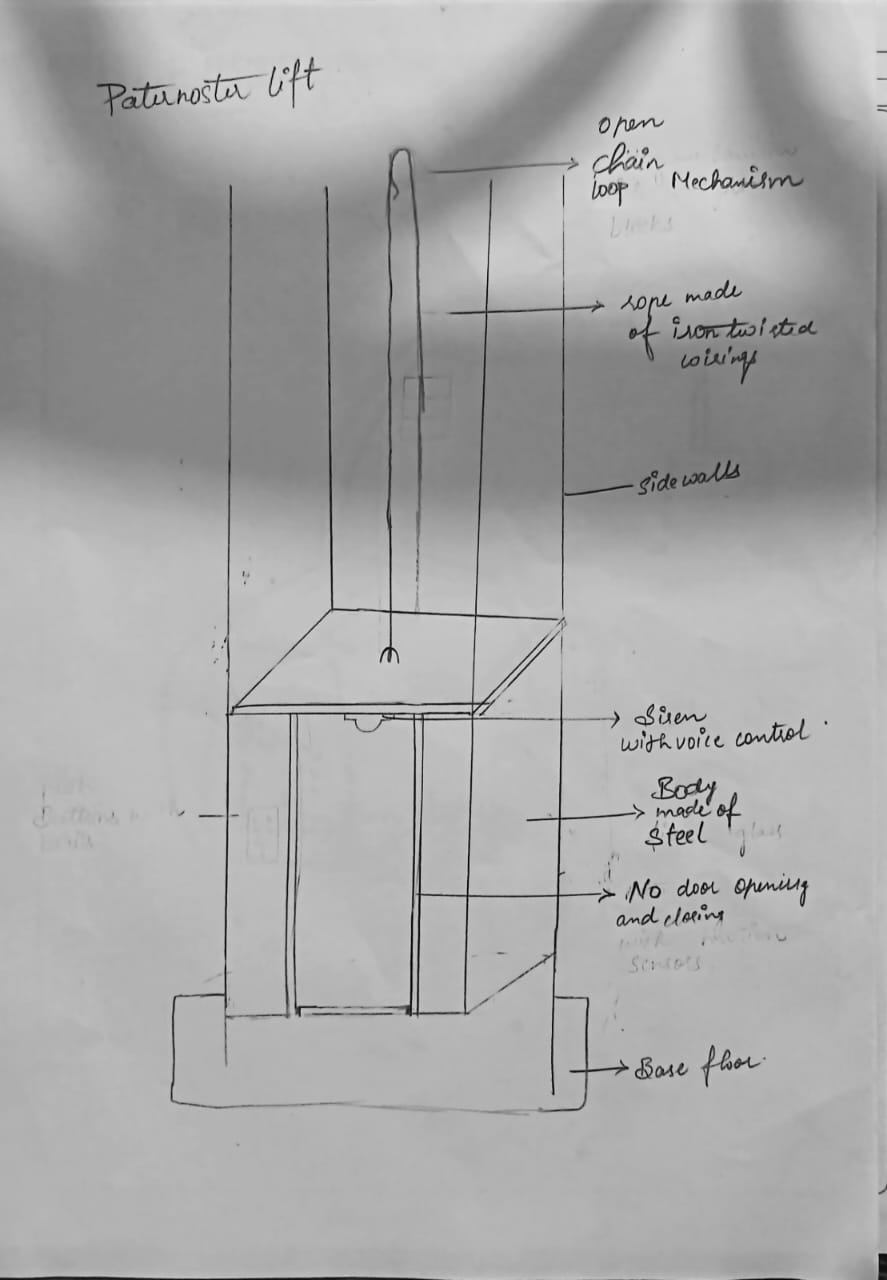 Paternoster lift
open
chain
loop Mechanism
rope made
of iron twisted
wirings
Sidewalls
Siren
with voice control.
Body
made of
Steel
glass
Buttons
No door opening
and closing
with motion
sensors
Base floor.